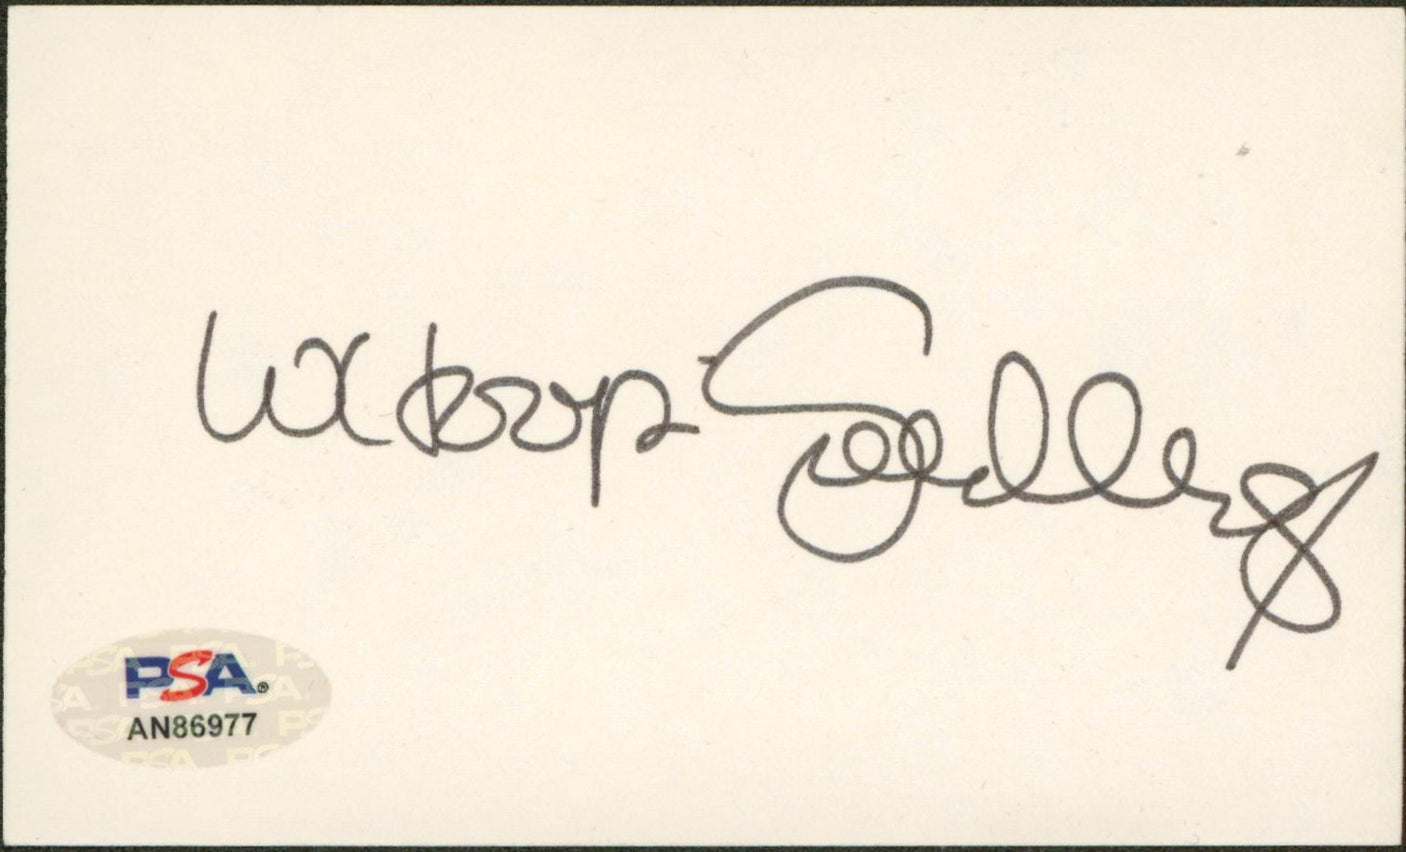 Whoopi Goldberg
PSA®
AN86977